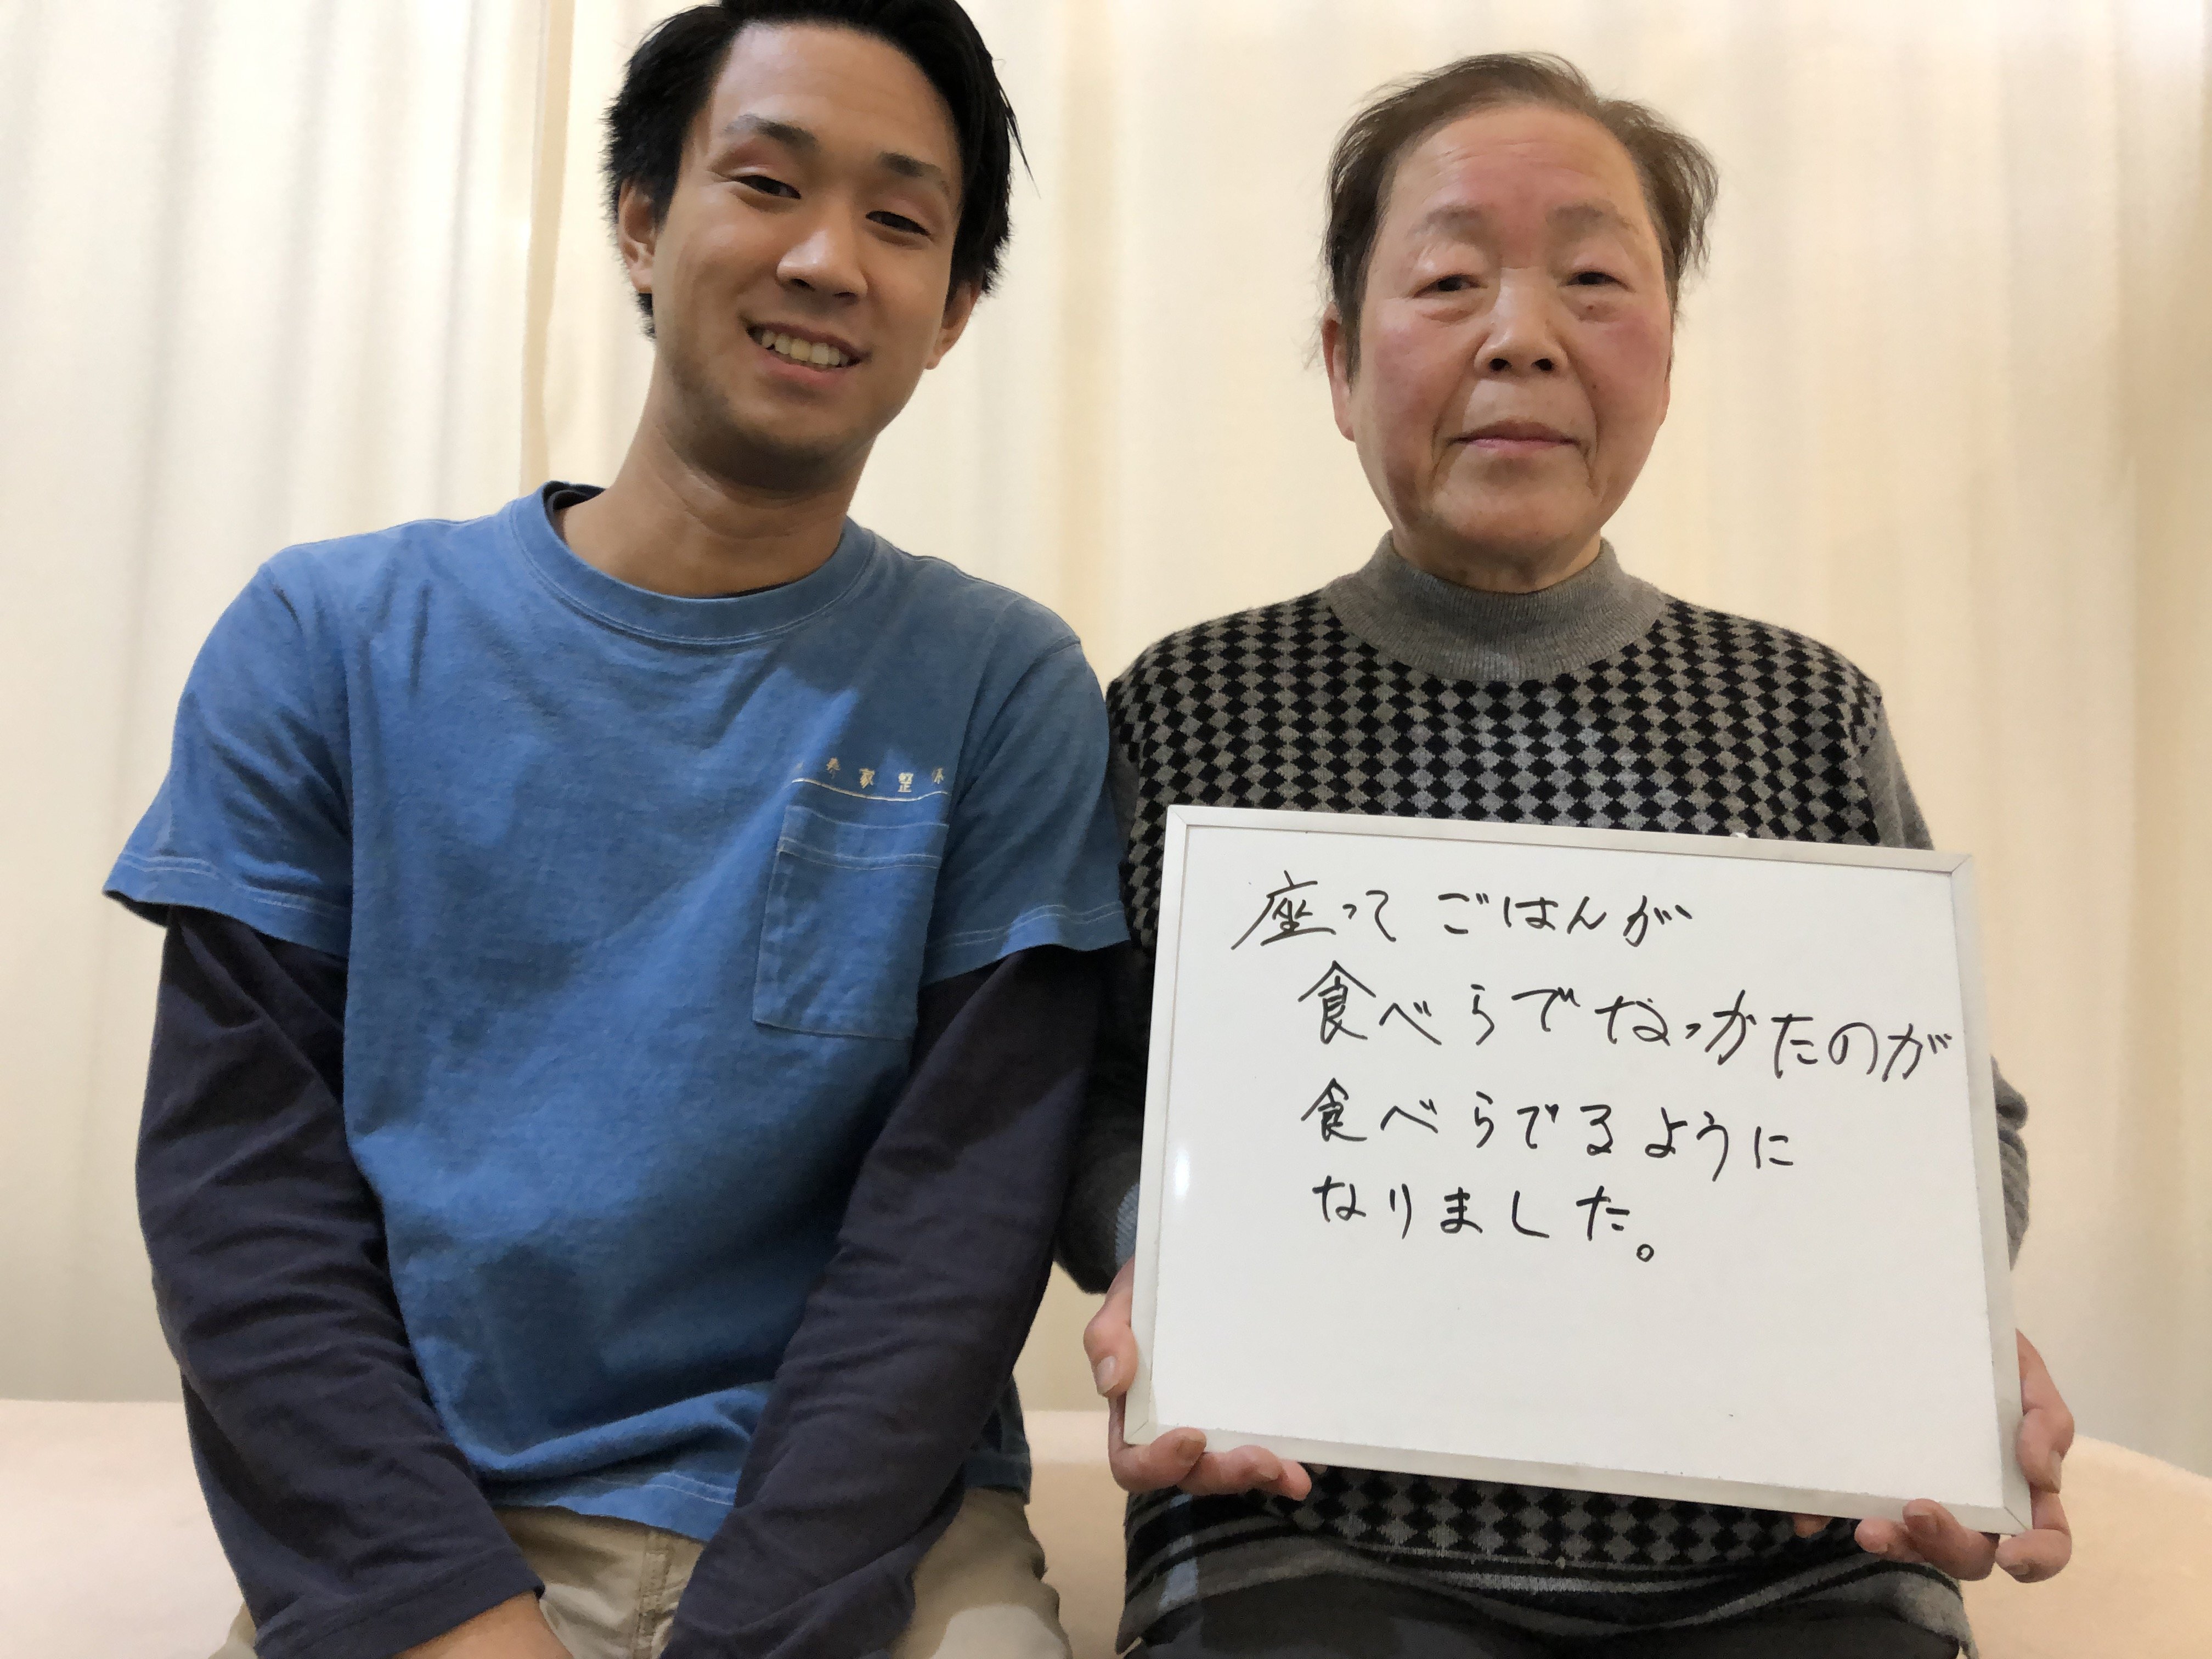 座って ごはんが
食べらでなっかたのが
食べらでるように
なりました。
家整